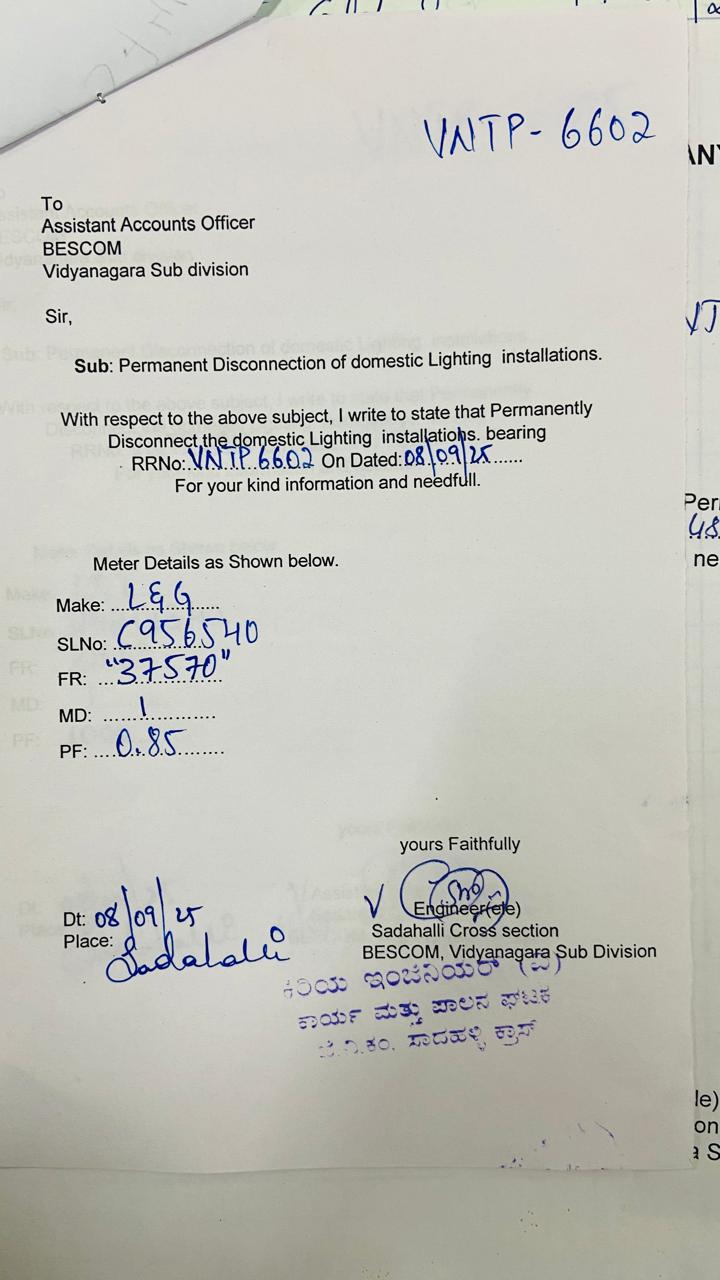 VNTP- 6602
To
Assistant Accounts Officer
BESCOM
Vidyanagara Sub division
Sir,
Sub: Permanent Disconnection of domestic Lighting installations.
With respect to the above subject, I write to state that Permanently
Disconnect the domestic Lighting installations. bearing
RRNo:.VNTP 6602 On Dated:08/09/25......
For your kind information and needfull.
Meter Details as Shown below.
Make: ....L&G......
SLNo: C956540
FR: ..."37570"
MD: ......1............
PF: ....0.85........
yours Faithfully
Engineer(ele)
Dt: 08/09/25
Sadahalli Cross section
Place: Sadahalli
BESCOM, Vidyanagara Sub Division
ಕಿರಿಯ ಇಂಜಿನಿಯರ್ (ವಿ)
ಕಾರ್ಯ ಮತ್ತು ಪಾಲನ ಘಟಕ
ಸಾದಹಳ್ಳಿ ಕ್ರಾಸ್